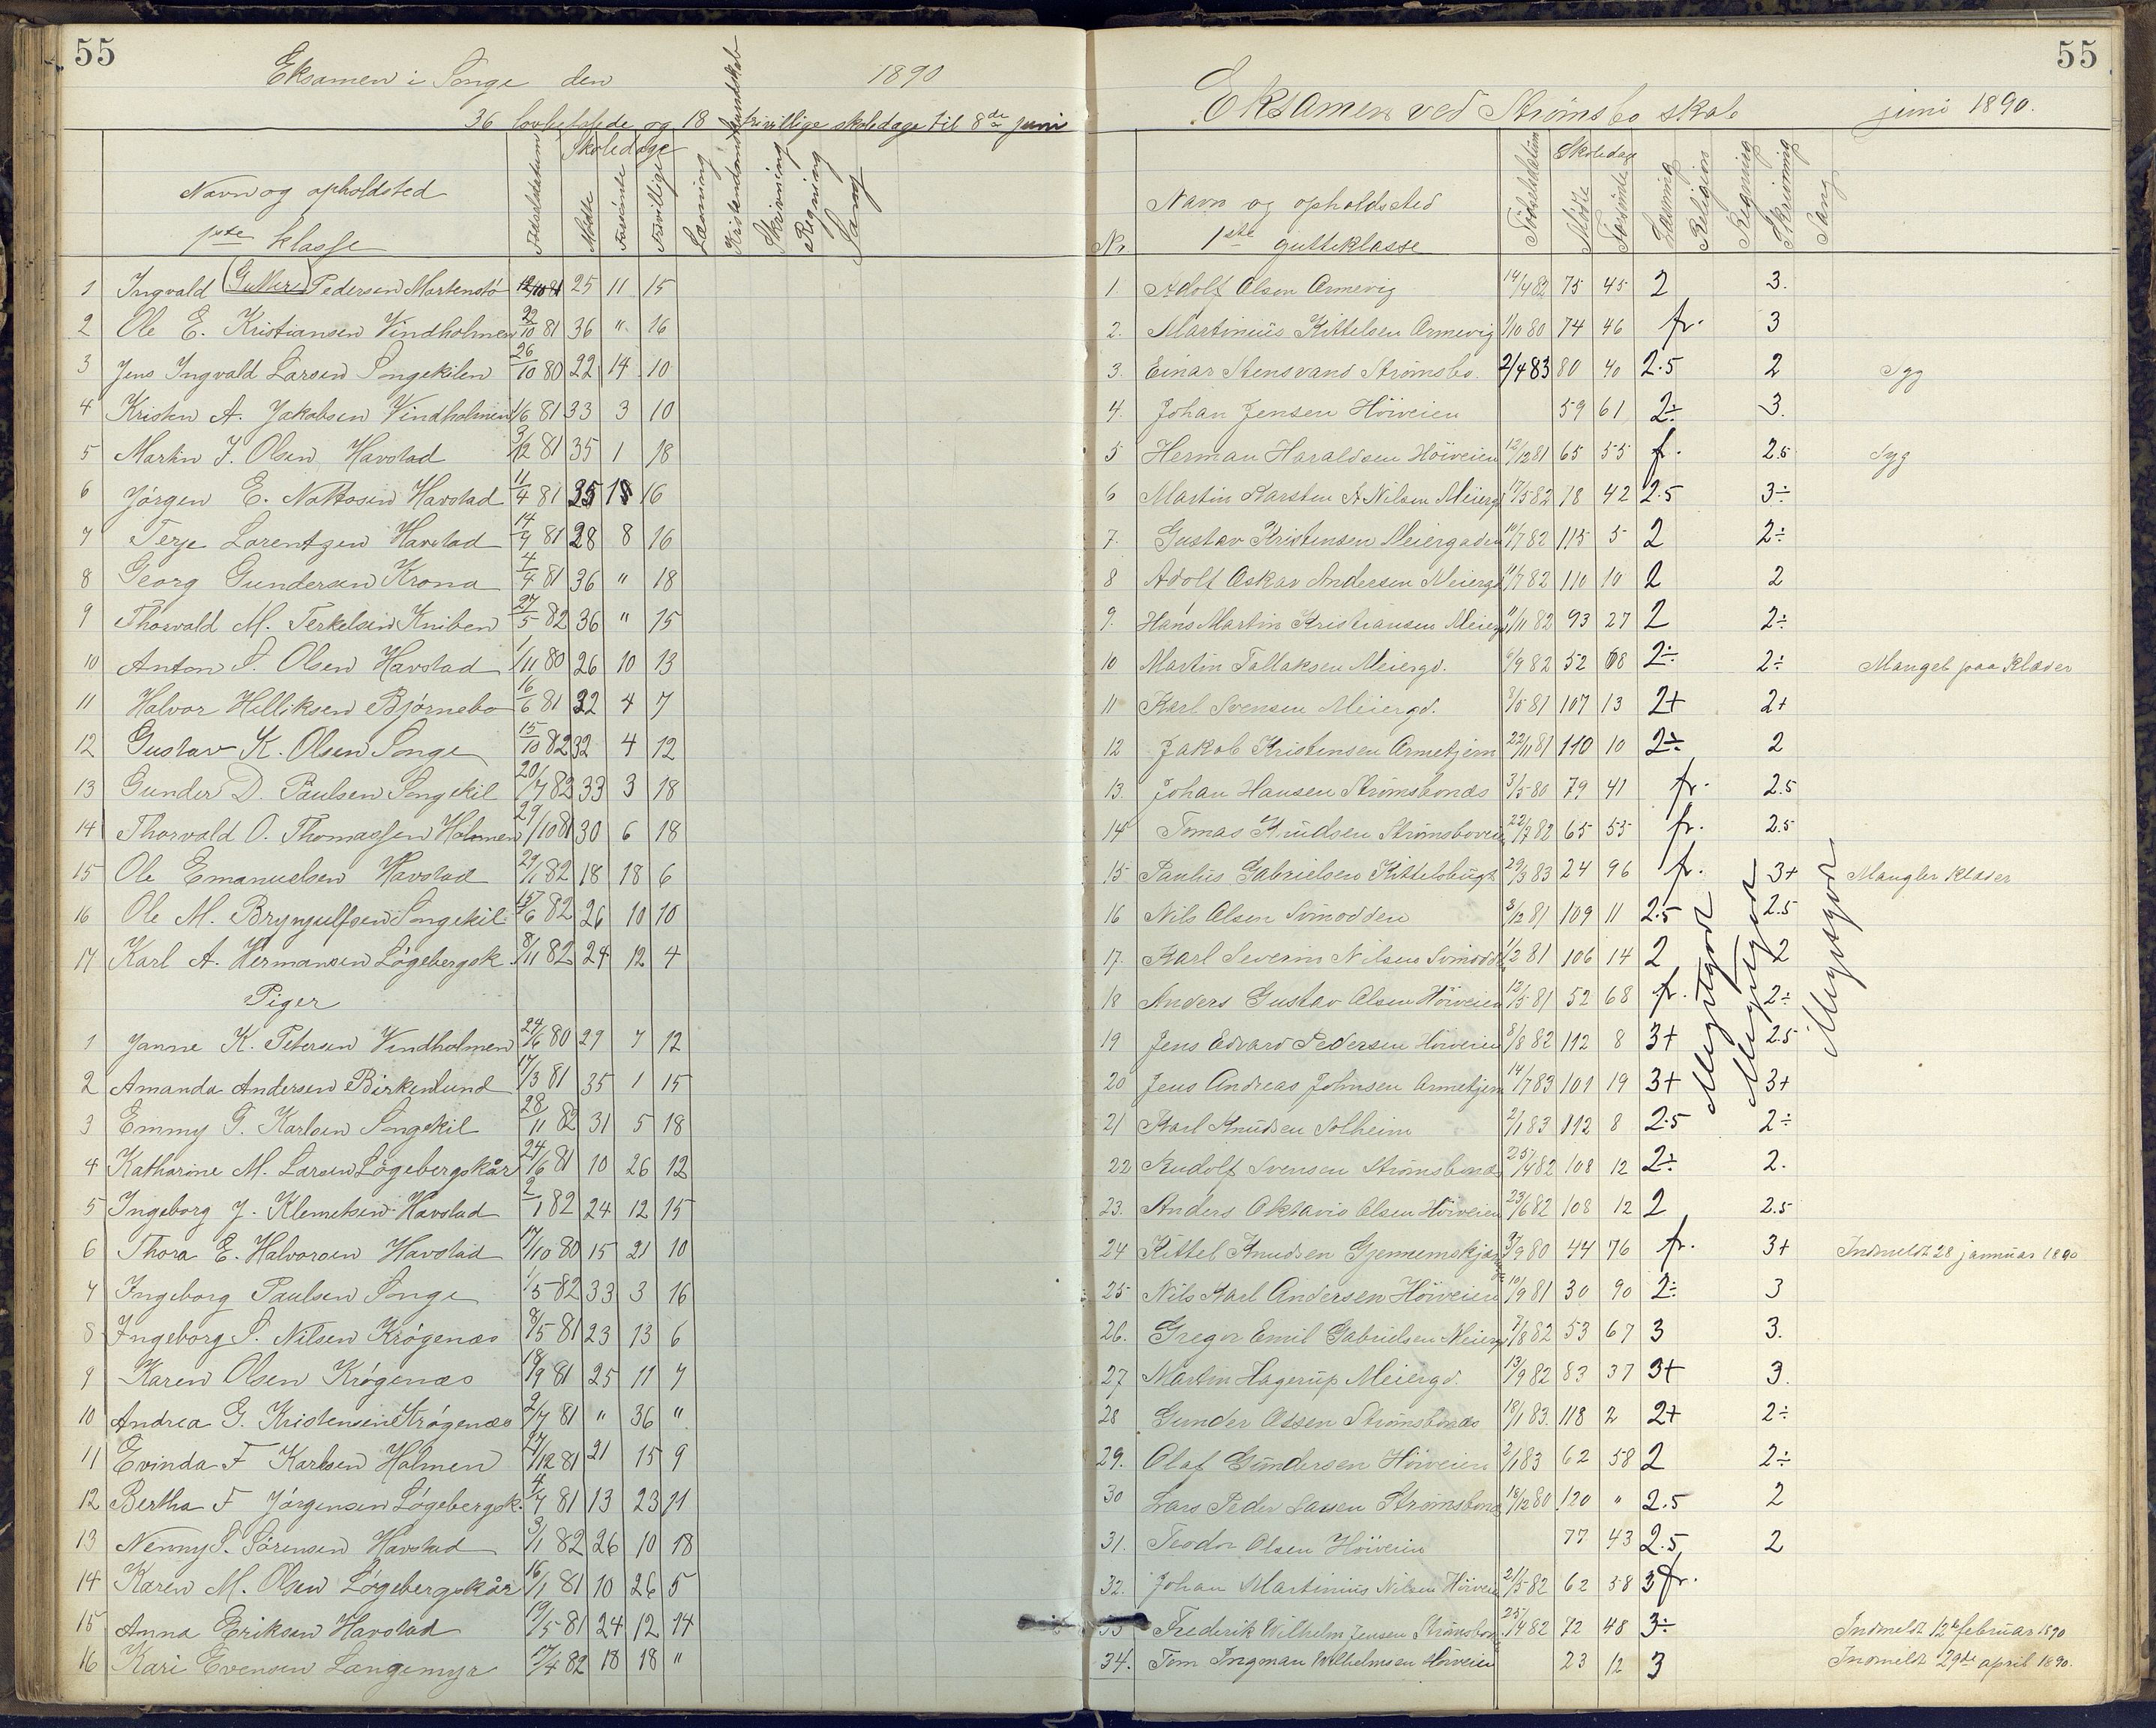 55
Eksamen i Songe den 1890
36 lovbefalede og 18 frivillige skoledage til 8de juni
Navn og opholdsted
1ste klasse
Fødselsdatum
Skoledage
Mødte
Forsømte
Frivillige
Læsning
Kristendomskundskab
Skrivning
Regning
Sang
1 Ingvald Pedersen Mortensto 12/10 81 25 11 15
2 Ole E. Kristiansen Vindholmen 22/10 81 36 " 16
3 Jens Ingvald Larsen Songekilen 26/10 80 22 14 10
4 Kristen A. Jakobsen Vindholmen 1/6 81 33 3 10
5 Martin J. Olsen Havstad 3/12 81 35 1 18
6 Jørgen E. Nottosen Havstad 11/4 81 35 16
7 Terje Lorentzen Havstad 14/9 81 28 8 16
8 Georg Gundersen Krona 4/4 81 36 " 18
9 Thorvald M. Terkelsen Kniben 27/5 82 36 " 15
10 Anton S. Olsen Havstad 1/11 80 26 10 13
11 Halvor Helliksen Bjørnebo 16/6 81 32 4 7
12 Gustav K. Olsen Songe 15/10 82 32 4 12
13 Gunder D. Paulsen Songekil 20/7 82 33 3 18
14 Thorvald O. Thomassen Holmen 29/10 81 30 6 18
15 Ole Emanuelsen Havstad 29/1 82 18 18 6
16 Ole M. Brynjulfsen Songekil 15/6 82 26 10 10
17 Karl A. Hermansen Løgebergsk. 8/11 82 24 12 4
Piger
1 Janne K. Petersen Vindholmen 24/6 80 29 7 12
2 Amanda Andersen Birkenlund 17/3 81 35 1 15
3 Emmy G. Karlsen Songekil 28/11 82 31 5 18
4 Katharine M. Larsen Løgebergskår 24/6 81 10 26 12
5 Ingeborg J. Klemetsen Havstad 2/1 82 24 12 15
6 Thora E. Halvorsen Havstad 17/10 80 15 21 10
7 Ingeborg Paulsen Songe 1/5 82 33 3 16
8 Ingeborg S. Nilsen Krøgenæs 8/5 81 23 13 6
9 Karen Olsen Krøgenæs 18/9 81 25 11 7
10 Andrea G. Kristensen Krøgenæs 2/7 81 " 36 "
11 Evinda F Karlsen Holmen 27/12 81 21 15 9
12 Bertha F Jørgensen Løgebergsk. 4/7 81 13 23 11
13 Nenny S. Sørensen Havstad 3/1 82 26 10 18
14 Karen M. Olsen Løgebergskår 16/1 81 10 26 5
15 Anna Eriksen Havstad 19/5 81 24 12 14
16 Kari Evensen Langemyr 17/4 82 18 18 "
55
Eksamen ved Strømsbo skole juni 1890.
Nr.
Navn og opholdssted
1ste gutteklasse
Fødselsdatum
Skoledag
Mødte
Forsømte
Læsning
Religion
Regning
Skrivning
Sang
1 Adolf Olsen Arnevig 14/4 82 75 45 2 3.
2. Martinius Kittelsen Arnevig 1/10 80 74 46 fr. 3
3. Einar Stensvand Strømsbo. 2/4 83 80 40 2.5 2 Syg
4. Johan Jensen Høiveien 59 61 2÷ 3.
5 Herman Haraldsen Høiveien 12/12 81 65 55 f. 2.5 Syg
6 Martin Karsten A Nilsen Meiergd 17/5 82 78 42 2.5 3÷
7. Gustav Kristensen Meiergaden 10/7 82 115 5 2 2÷
8 Adolf Oskar Andersen Meiergd 11/7 82 110 10 2 2
9. Hans Martin Kristiansen Meiergd 11/11 82 93 27 2 2÷
10 Martin Tallaksen Meiergd. 5/9 82 52 68 2÷ 2÷ Mangel paa Klæder
11 Karl Svensen Meiergd. 8/5 81 107 13 2+ 2+
12 Jakob Kristensen Arnetjern 22/11 81 110 10 2÷ 2
13. Johan Hansen Strømsbonæs 3/5 80 79 41 fr. 2.5
14 Tomas Knudsen Strømsboveien 22/7 82 65 55 fr. 2.5
15 Paulus Gabrielsen Kittelsbugt 29/3 83 24 96 f. 3+ Mangler klæder
16 Nils Olsen Svinodden 3/12 81 109 11 2.5 2.5
17. Karl Severin Nilsen Svinodd 1/2 81 106 14 2 2
18 Anders Gustav Olsen Høiveien 12/5 81 52 68 f. 2÷
19 Jens Edvard Pedersen Høiveien 8/8 82 112 8 3+ 2.5
20 Jens Andreas Johnsen Arnetjern 14/7 83 101 19 3+ 3+
21 Karl Knudsen Solheim 2/1 83 112 8 2.5 2÷
22 Rudolf Svensen Strømsbonæs 25/4 82 108 12 2÷ 2.
23. Anders Oktavio Olsen Høiveien 23/6 82 108 12 2 2.5
24 Kittel Knudsen Gjennemskjæringen 3/9 80 44 76 fr. 3+ Indmeldt 28 januar 1890
25 Nils Karl Andersen Høiveien 10/9 81 30 90 2÷ 3
26. Gregor Emil Gabrielsen Meiergd 7/8 82 53 67 3 3.
27 Martin Hagerup Meiergd. 13/9 82 83 37 3+ 3.
28 Gunder Olsen Strømsbonæs 18/1 83. 118 2 2+ 2÷
29. Olaf Gundersen Høiveien 2/1 83 62 58 2 2÷
30 Lars Peder Larsen Strømsbonæs 18/12 80 120 " 2.5 2
31. Teodor Olsen Høiveien 77 43 2.5 2
32. Johan Martinius Nilsen Høiveien 21/5 82 62 58 3 fr.
33 Frederik Wilhelm Jensen Strømsbonæs 25/4 82 72 48 3÷ Indmeldt 12te februar 1890
34. Tom Ingman Wilhelmsen Høiveien 23 12 3 Indmeldt 29de april 1890.
Megetgodt
Megetgodt
Megetgodt